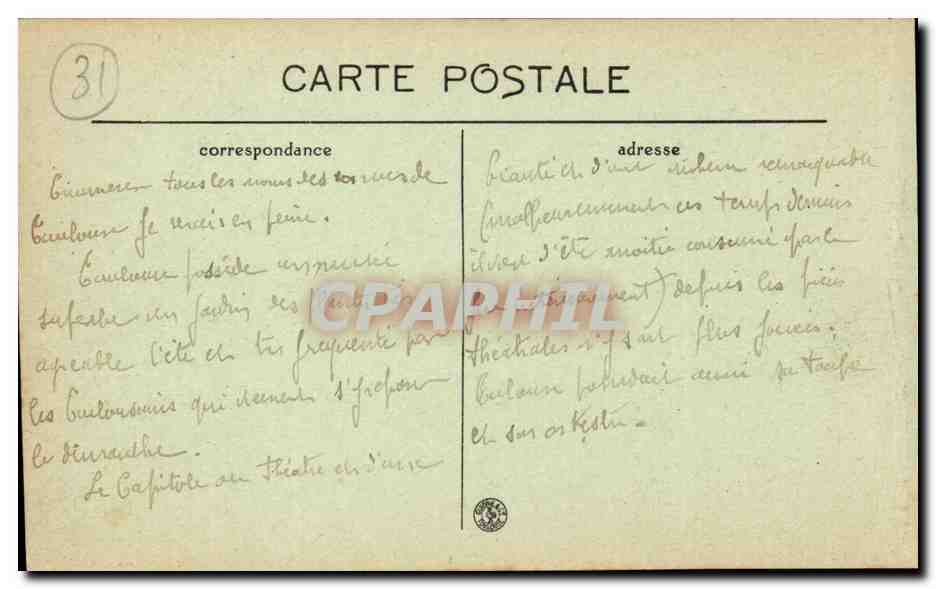 31
CARTE POSTALE
correspondance
tous les noms des rues de
Toulouse je serais en peine.
Toulouse possède
superbe un jardin des plantes
agréable l'été et très fréquenté par
les Toulousains qui viennent s'y reposer
le dimanche.
Le Capitole ou théâtre est d'une
adresse
beauté et d'une richesse remarquable
(malheureusement ces temps derniers
il vient d'être moitié consumé par le
feu intérieurement) depuis les pièces
théâtrales n'y sont plus jouées.
Toulouse aussi sa troupe
et son orchestre.
CPAPHIL